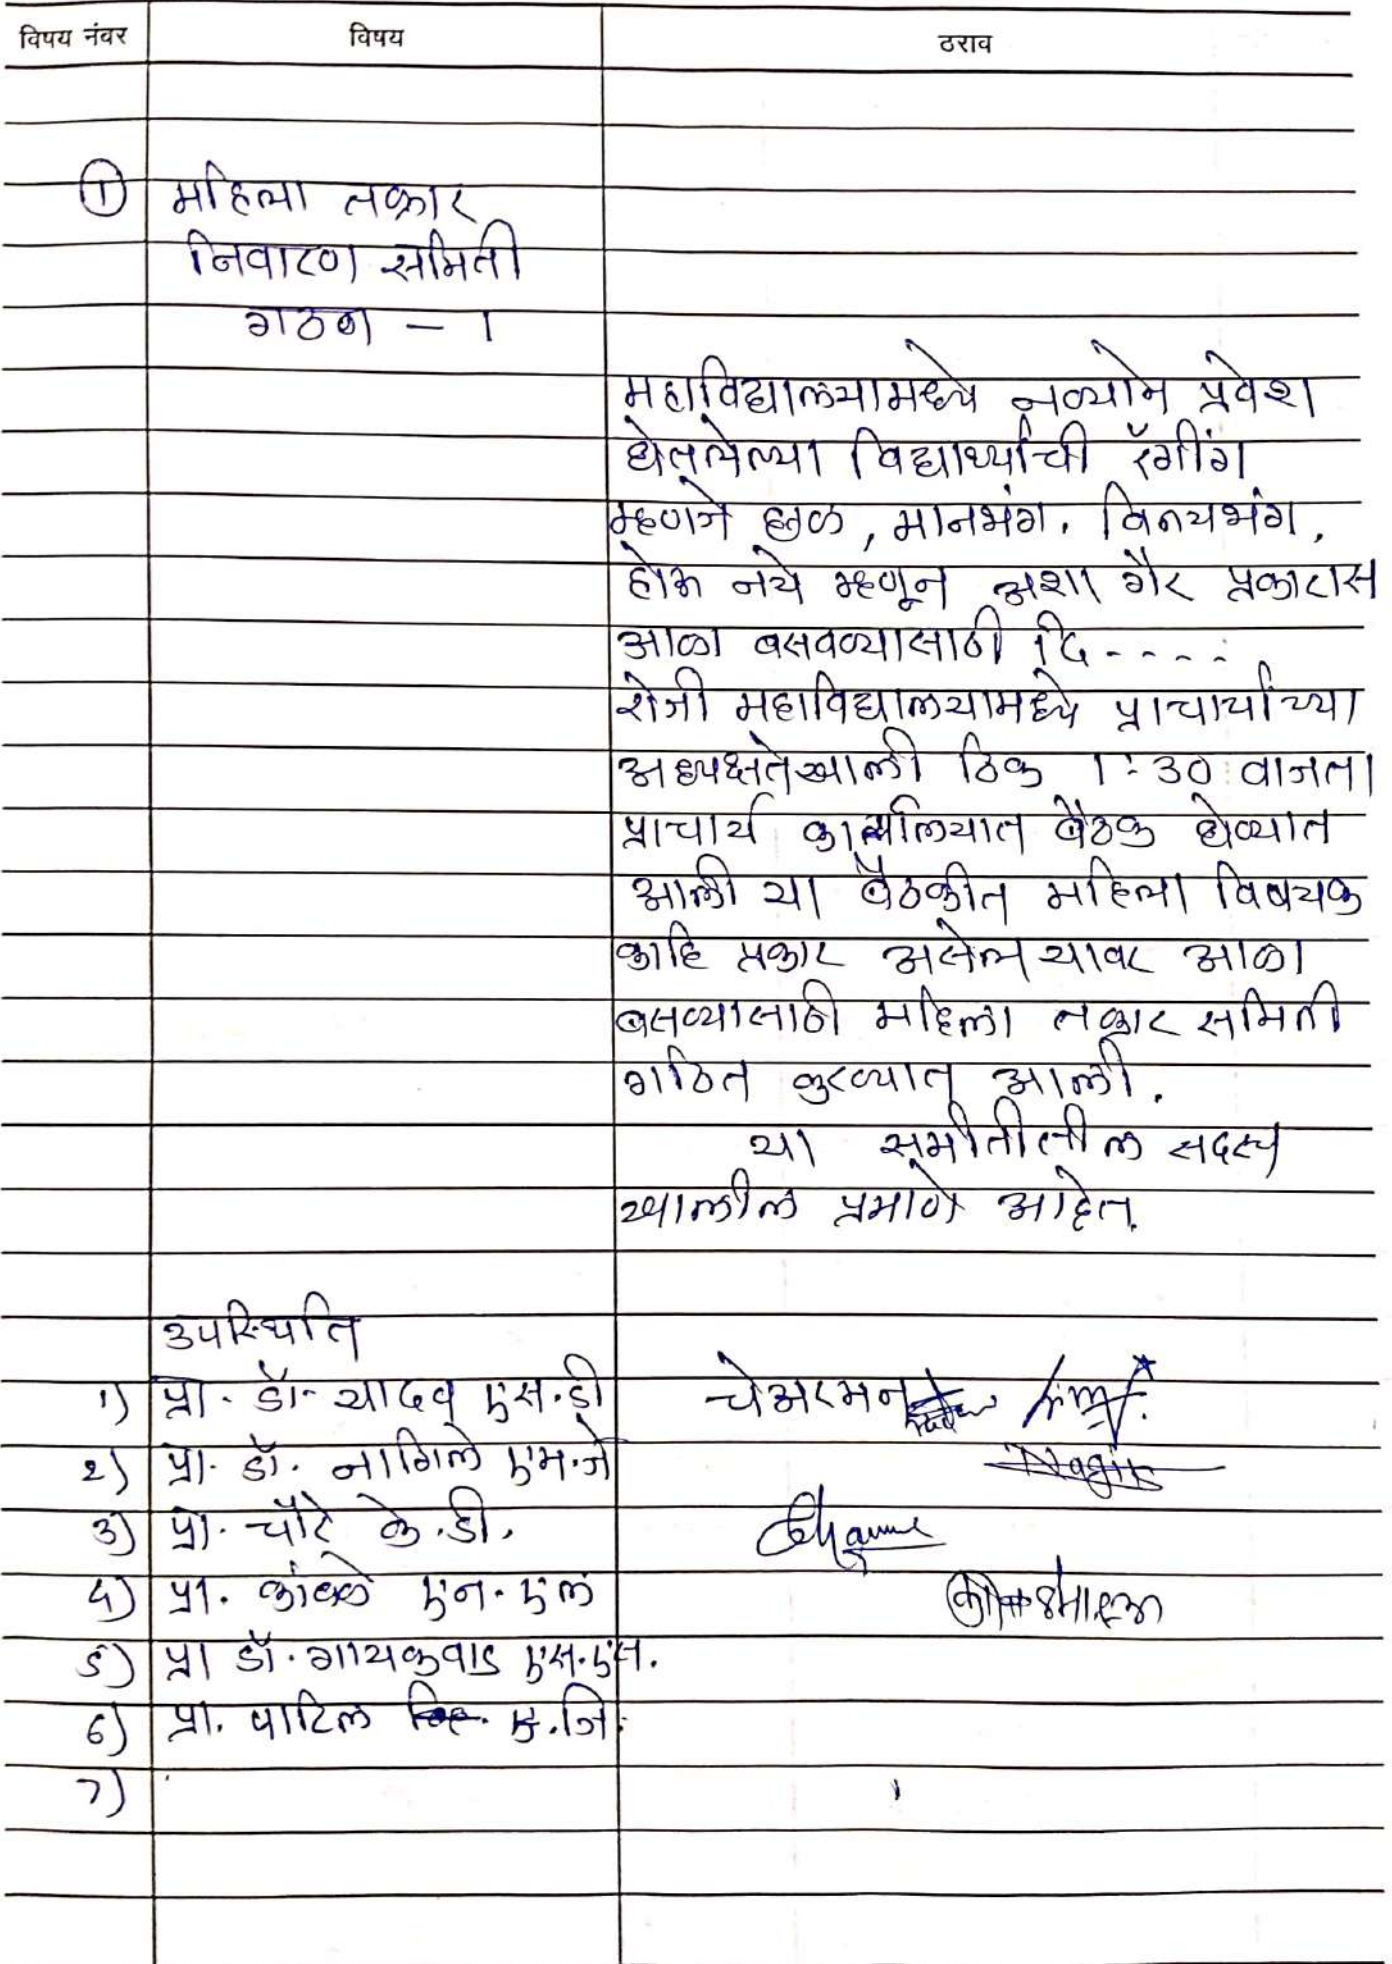 विषय नंबर विषय ठराव
① महिला तक्रार
निवारण समिती
गठण - 1
महाविद्यालयामध्ये नव्याने प्रवेश
घेतलेल्या विद्यार्थ्यांची रॅगींग
म्हणजे छळ, मानभंग. विनयभंग,
होऊ नये म्हणून अशा गैर प्रकारास
आळा बसवण्यासाठी दि-----
रोजी महाविद्यालयामध्ये प्राचार्यांच्या
अध्यक्षतेखाली ठिक 1:30 वाजता
प्राचार्य कार्यालयात बैठक घेण्यात
आली या बैठकीत महिला विषयक
काहि प्रकार असेल यावर आळा
बसण्यासाठी महिला तक्रार समिती
गठित करण्यात आली.
या समीतीतील सदस्य
खालील प्रमाणे आहेत.
उपस्थिति
1) प्रा. डॉ. यादव एस.डी चेअरमन
2) प्रा. डॉ. नागिले एम.जे
3) प्रा. चौरे के.डी.
4) प्रा. कांबळे एन. एल
5) प्रा डॉ. गायकवाड एस.एस.
6) प्रा. पाटिल ए.जि.
7)